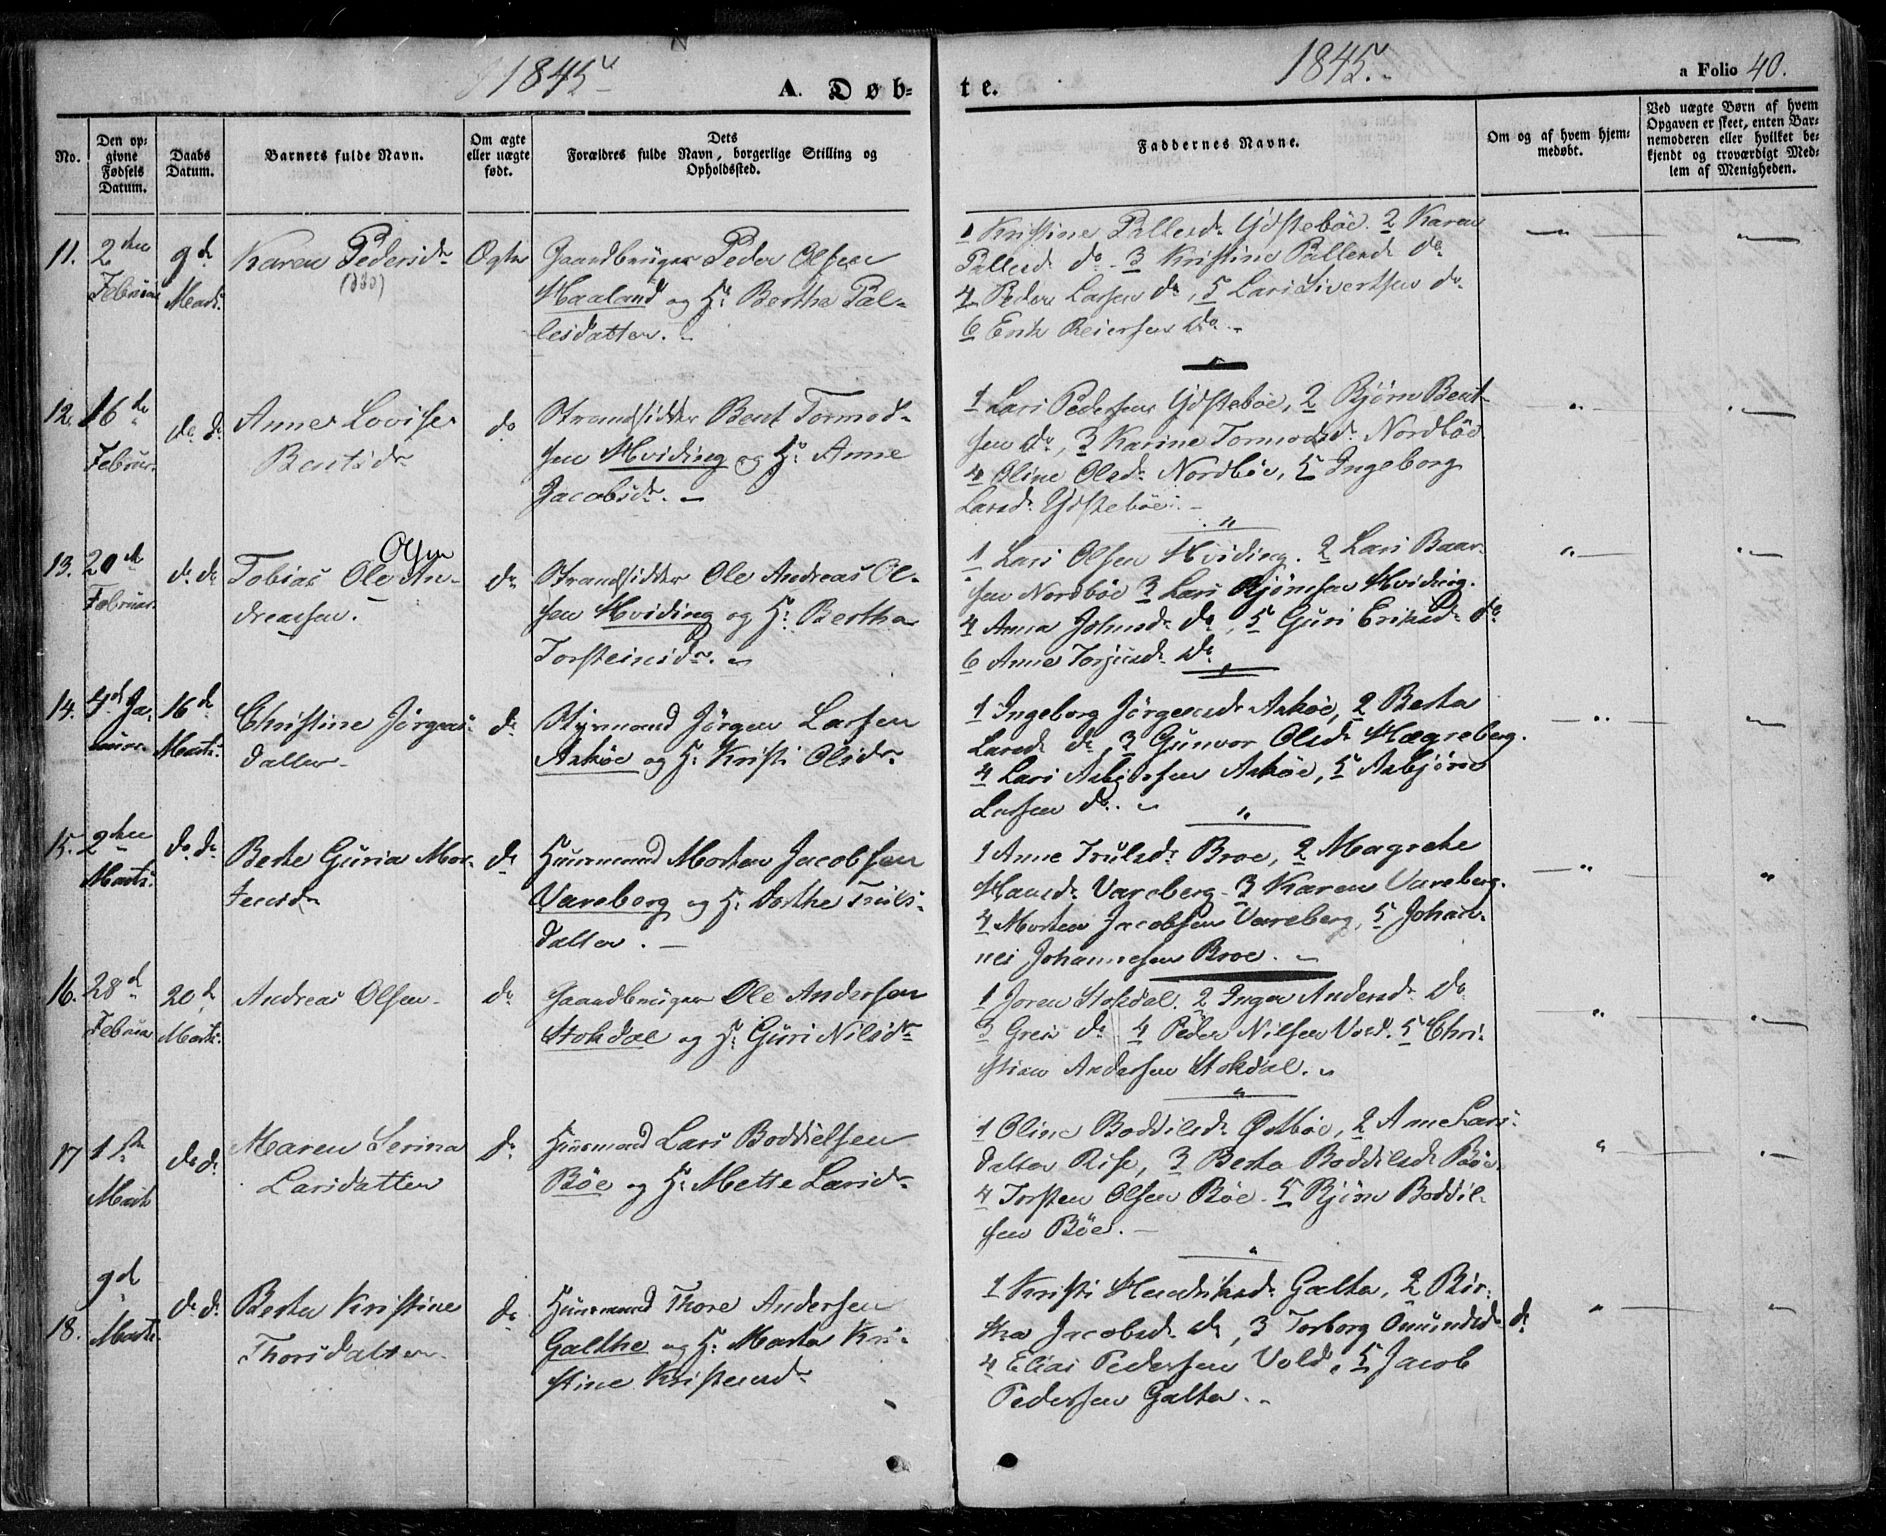 1845
A. Døb-
te.
1845.
a Folio 40.
No.
Den op-
givne
Fødsels
Datum.
Daabs
Datum.
Barnets fulde Navn.
Om ægte
eller uægte
født.
Dets
Forældres fulde Navn, borgerlige Stilling og
Opholdssted.
Faddernes Navne.
Om og af hvem hjem-
medøbt.
Ved uægte Børn af hvem
Opgaven er skeet, enten Bar-
nemoderen eller hvilket be-
kjendt og troværdigt Med-
lem af Menigheden.
11.
2den
Februar
9de
Marts.
Karen Pedersdr
Ægte
Gaardbruger Peder Olsen
Haaland og H: Berthe Pal-
lesdatter.
1 Kristine Pallesd: Ydstebøe. 2 Karen
Pallesd: do. 3 Kristine Pallesd: do
4 Peder Larsen do, 5 Lars Sivertsen do
6 Erik Reiersen do
12.
16de
Februar.
do do
Anne Lovise
Bentsdr
do
Strandsidder Bent Tormod-
sen Hviding og H: Anne
Jacobsdr. -
1 Lars Pedersen Ydstebøe, 2 Bjørn Bent-
sen do, 3 Karine Tormodsdr Nordbøe
4 Oline Olsdr Nordbøe, 5 Ingeborg
Larsd: Ydstebøe. -
13.
20de
Februar.
do do
Olsen
Tobias Ole An-
dreassen.
do
Strandsidder Ole Andreas Ol-
sen Hviding og H: Bertha
Torsteinsdr.
1 Lars Olsen Hviding. 2 Lars Baar-
sen Nordbøe 3 Lars Bjørnsen Hviding.
4 Anna Johnsd: do, 5 Guri Eriksd: do
6 Anne Torjusd: do
14.
4d Ja-
nuar
16de
Marts.
Christine Jørgens-
datter
do
Styrmand Jørgen Larsen
Askøe og H: Kristi Olsdr
1 Ingeborg Jørgensd: Askøe, 2 Berta
Larsd: do, 3 Gunvor Olsd: Hægreberg.
4 Lars Asbjørnsen Askøe, 5 Asbjørn
Larsen do.
15.
2den
Marts.
do do
Berte Guria Mor-
tensdr
do
Huusmand Morten Jacobsen
Vareberg og H: Dorthe Truls-
datter. -
1 Anne Trulsdr Broe, 2 Magrete
Hansdr Vareberg. 3 Karen Vareberg.
4 Morten Jacobsen Vareberg, 5 Johan-
nes Johannesen Broe. -
16.
28d
Februar
20de
Marts.
Andreas Olsen
do
Gaardbruger Ole Andersen
Stokdal og H: Guri Nilsdr
1 Joren Stokdal. 2 Inger Andersd: do
3 do 4 Peder Nilsen Vold. 5 Chri-
stian Andersen Stokdal.
17
1ste
Marts
do do
Maren Serina
Larsdatter
do
Huusmand Lars Boddielsen
Bøe og H: Mette Larsdr
1 Oline Boddilsd: Østbøe, 2 Anne Lars-
datter Rise, 3 Berta Boddilsd: Bøe
4 Torsten Olsen Bøe. 5 Bjørn Boddil-
sen Bøe. -
18.
9d
Marts
do do
Berta Kristine
Thorsdatter
do
Huusmand Thore Andersen
Galthe og H: Marta Kri-
stine Kristensdr
1 Kristi Hendriksd: Galta, 2 Bir-
tha Jacobsd: do, 3 Torborg Omundsd: do
4 Elias Pedersen Vold, 5 Jacob
Pedersen Galta.